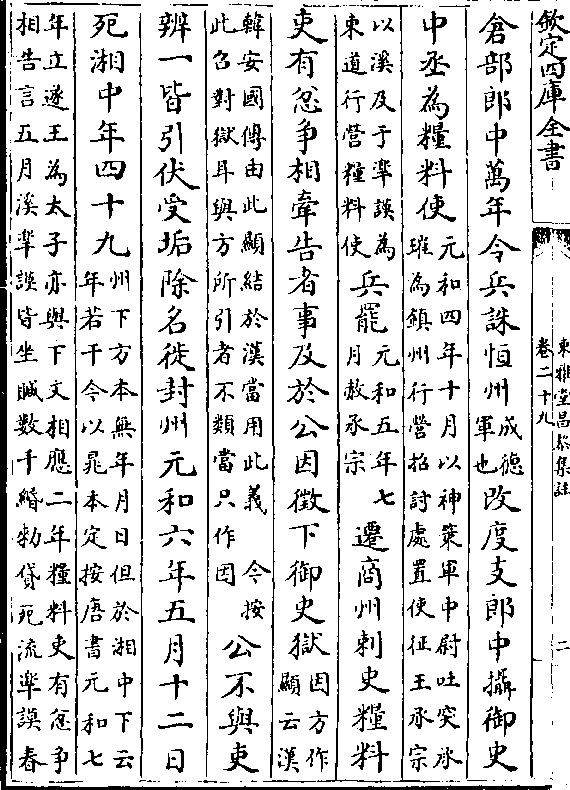 欽定四庫全書
東雅堂昌黎集註
卷二十九
二
倉部郎中萬年令兵誅恒州成德軍也改度支郎中攝御史
中丞為糧料使元和四年十月以神策軍中尉吐突承璀為鎮州行營招討處置使征王承宗
以溪及于臯謨為東道行營糧料使兵罷元和五年七月赦承宗遷商州刺史糧料
吏有忿争相牽告者事及於公因徴下御史獄因方作顯云漢
韓安國傳由此顯結於漢當用此義今按此訋對獄耳與方所引者不類當只作因公不與吏
辨一皆引伏受垢除名徙封州元和六年五月十二日
死湘中年四十九州下方本無年月日但於湘中下云年若干今以晁本定按唐書元和七
年立遂王為太子亦與下文相應二年糧料吏有忿争相告言五月溪臯謨皆坐贓數千緡勑貸死流臯謨春